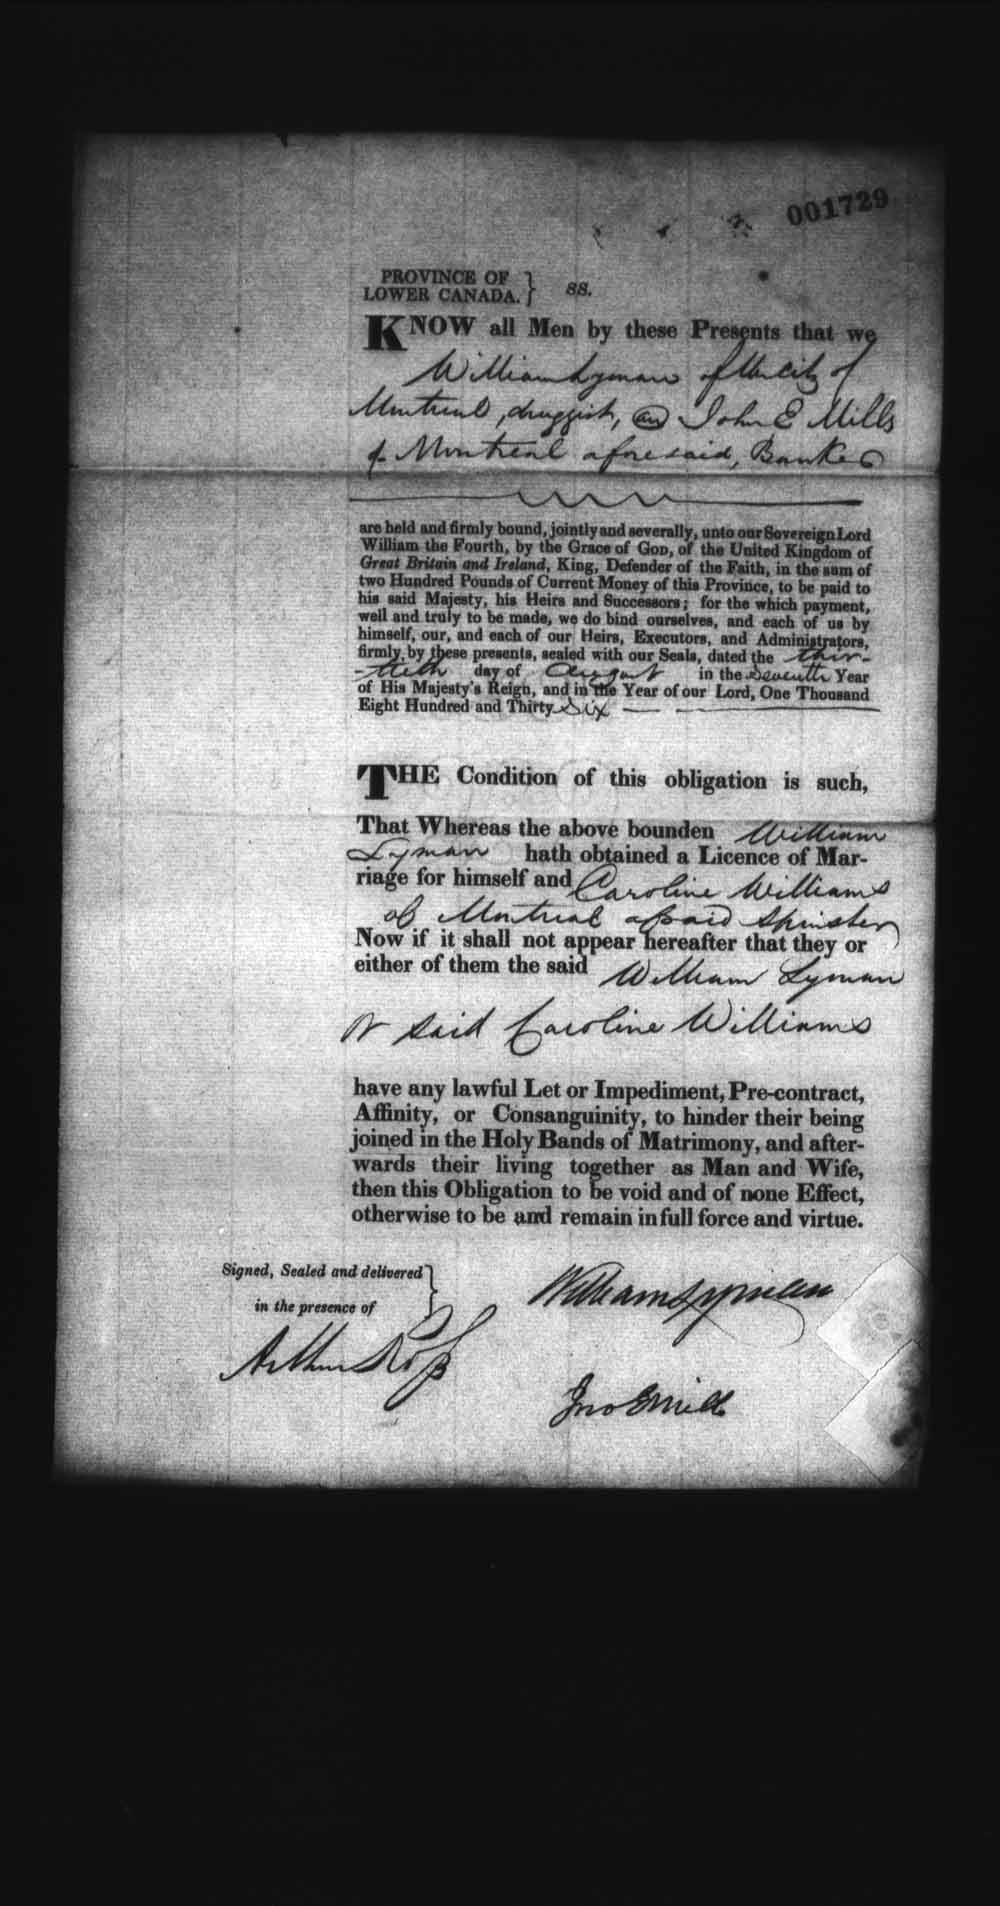 001729
PROVINCE OF
LOWER CANADA. } ss.
KNOW all Men by these Presents that we
William Lyman of the City of
Montreal, druggist, and John E Mills
of Montreal aforesaid, Banker
are held and firmly bound, jointly and severally, unto our Sovereign Lord
William the Fourth, by the Grace of GOD, of the United Kingdom of
Great Britain and Ireland, King, Defender of the Faith, in the sum of
two Hundred Pounds of Current Money of this Province, to be paid to
his said Majesty, his Heirs and Successors; for the which payment,
well and truly to be made, we do bind ourselves, and each of us by
himself, our, and each of our Heirs, Executors, and Administrators,
firmly by these presents, sealed with our Seals, dated the thir-
-tieth day of August in the Seventh Year
of His Majesty's Reign, and in the Year of our Lord, One Thousand
Eight Hundred and Thirty Six
THE Condition of this obligation is such,
That Whereas the above bounden William
Lyman hath obtained a Licence of Mar-
riage for himself and Caroline Williams
of Montreal afsaid Spinster
Now if it shall not appear hereafter that they or
either of them the said William Lyman
or said Caroline Williams
have any lawful Let or Impediment, Pre-contract,
Affinity, or Consanguinity, to hinder their being
joined in the Holy Bands of Matrimony, and after-
wards their living together as Man and Wife,
then this Obligation to be void and of none Effect,
otherwise to be and remain in full force and virtue.
Signed, Sealed and delivered }
in the presence of
William Lyman
Arthur Ross
Jno E Mills